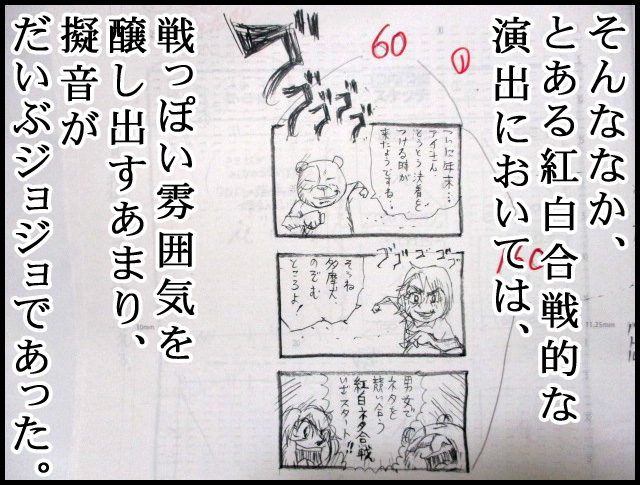 そんななか、
とある紅白合戦的な
演出においては、
60
①
ゴゴゴゴ
いよいよ年末…
アイさん、
とうとう決着を
つける時が
来たようですね…
ゴゴゴゴゴ
そうね
多摩犬、
のぞむ
ところよ!
男女で
ネタを
競い合う
紅白ネタ合戦
いざスタート!!
11.25mm
戦っぽい雰囲気を
醸し出すあまり、
擬音が
だいぶジョジョであった。